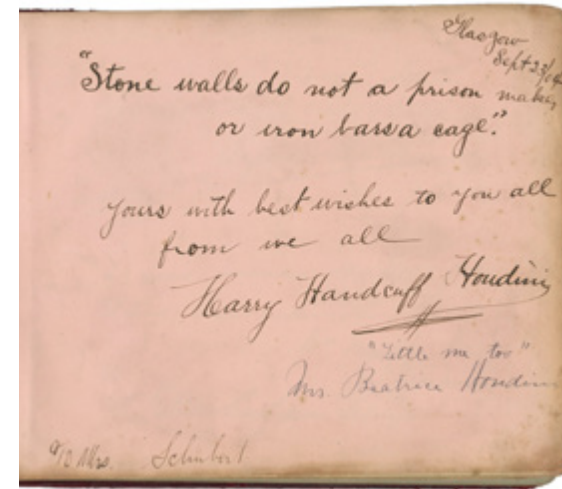 Glasgow
Sept 23/04
"Stone walls do not a prison make,
or iron bars a cage."
Yours with best wishes to you all
from we all
Harry Handcuff Houdini
"Little me too"
Mrs. Beatrice Houdini
Mrs. Schubert